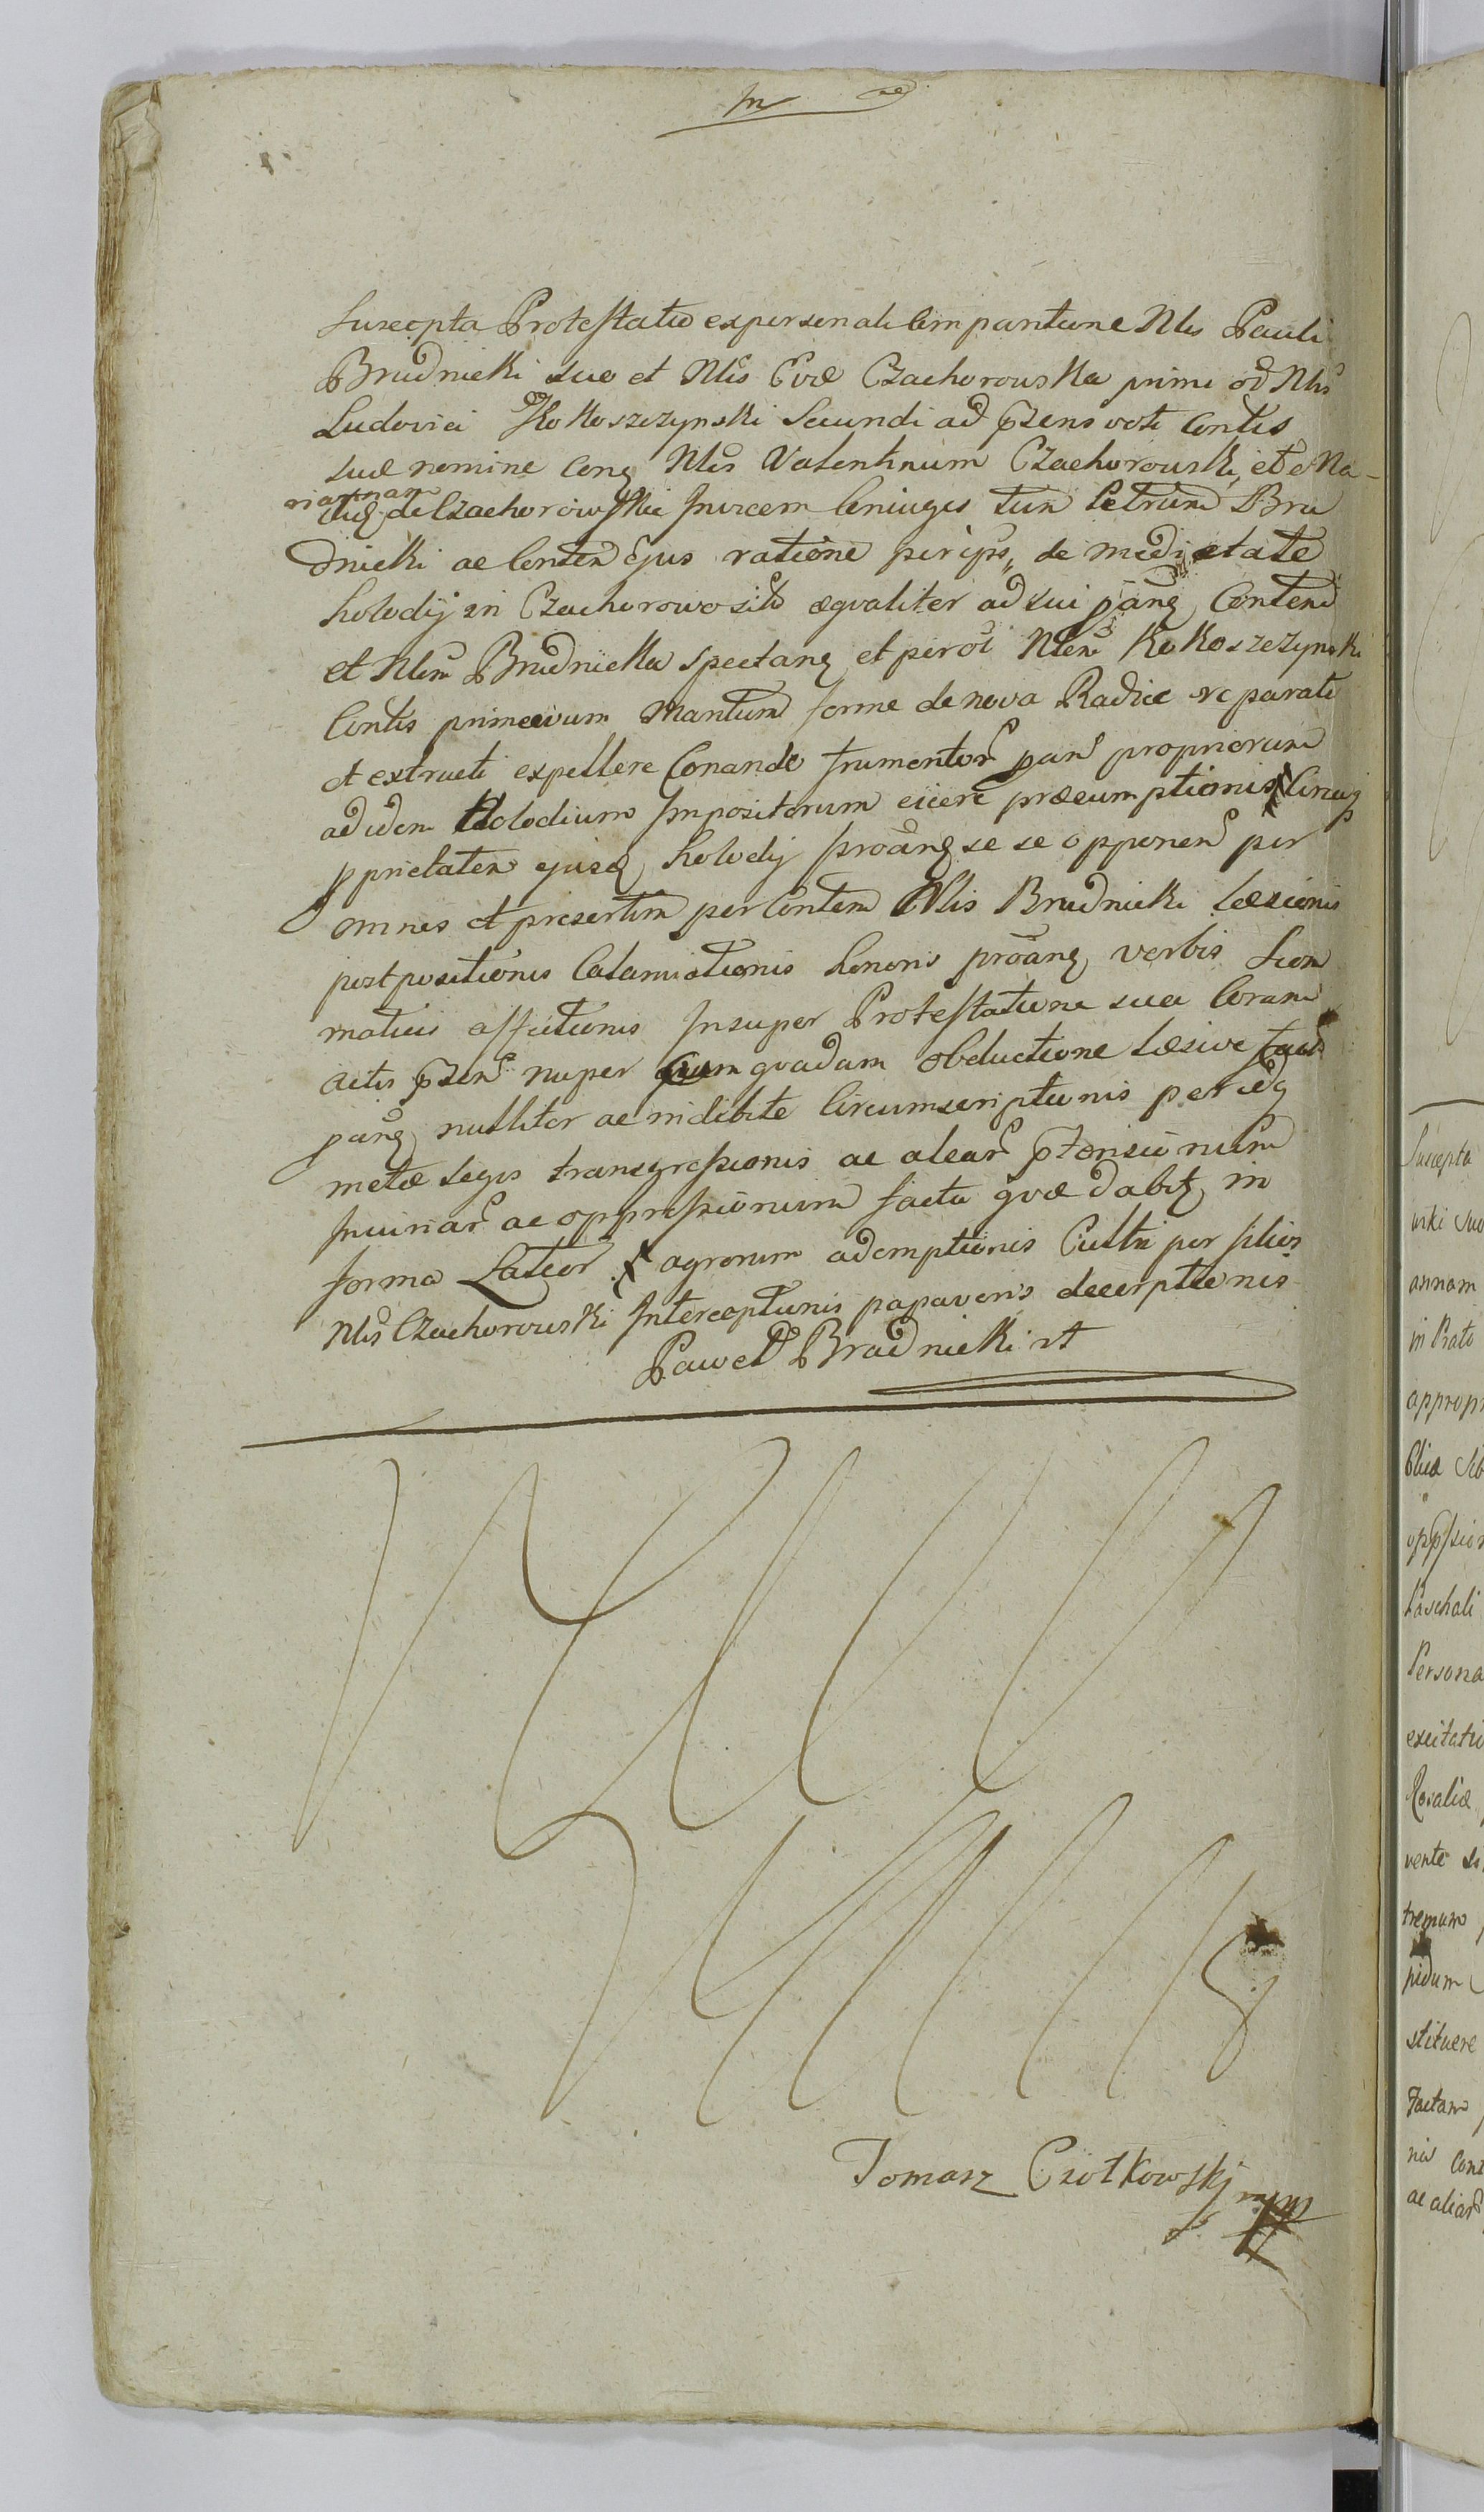 In ne
Suscepta Protestatio ex personali Comparitione Nlis Pauli
Brudnicki suo et Nlis Evæ Czachorowska primi od Nlis
Ludovici Kokoszczynski Secundi ad p̃sens voti Contis
suæ nomine Conq Nlis Valentinum Czachorowski, et Ma-
riannam
de Czachorowskie Invicem Coniuges tum Petrum Bru
dnicki ac Contem Ejus ratione per ips, de medietate
holodij in Czachorowo siti æqvaliter ad sui pãnq Contem
et Nlem Brudnicka spectanq et per ol Nlem Kokoszczynski
Contis primævum Maritum forme de nova Radice reparati
et extructi expellere Conando frumentor pan propriorum
ad idem Holodium Impositorum eiicere præsumptionis Circuq
pprietatem ejusq holodij proãnq se se opponen per
omnes et presertim per Contem Nlis Brudnicki Læsionis
postpositionis Calamiationis honoris proãnq verbis Scom
maticis affectionis Insuper Protestatione sua Coram
actis p̃sen nuper cum qvadam obductione Læsive facta
pãnq nulliter ac indebite Circumscriptionis per id q
metæ legis transgressionis ac alear p̃tensionum
Iniuriar ac oppressionum facta qvæ dabitq in
forma Latior agrorum ademptionis Cultri per filios
Nlis Czachorowski Interceptionis papaveris decerptionis
Paweł Brudnicki
Tomasz Ciołkowski mpp
Suscepta
nski suo
annam
in Prato
appropr
Persona
excitatio
Rosaliæ
vente
stituere
factam
nis Cont
ac aliar